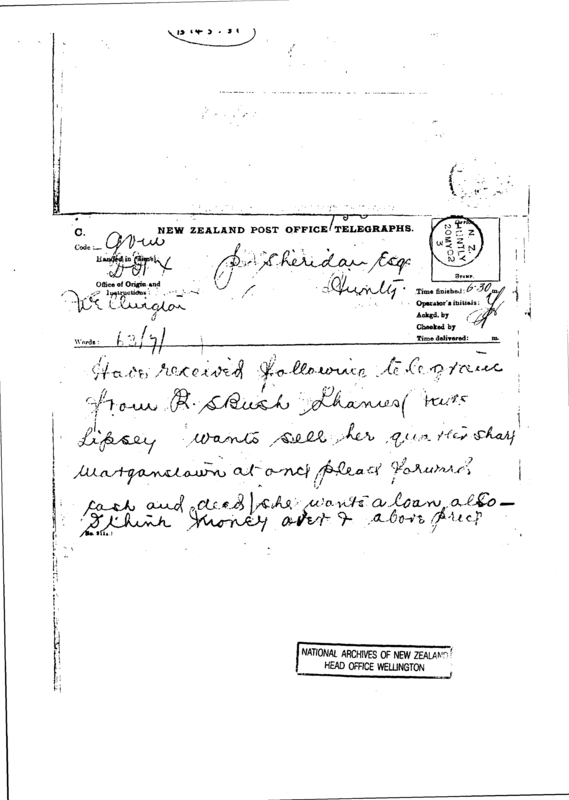 C.
NEW ZEALAND POST OFFICE TELEGRAPHS.
Code:
Handed in
Office of Origin and
Instructions:
Wellington
Words: 63/7/
Sheridan Esq
Huntly
N. Z.
HUNTLY
20MY02
3
Time finished: 6-30 m.
Operator's initials:
Ackgd. by
Checked by
Time delivered: m.
Have received following telegram
from R. S Bush Thames
Lipsey wants sell her share
Morgantown at once please forward
cash and deed she wants a loan also —
I think money over & above price
NATIONAL ARCHIVES OF NEW ZEALAND
HEAD OFFICE WELLINGTON